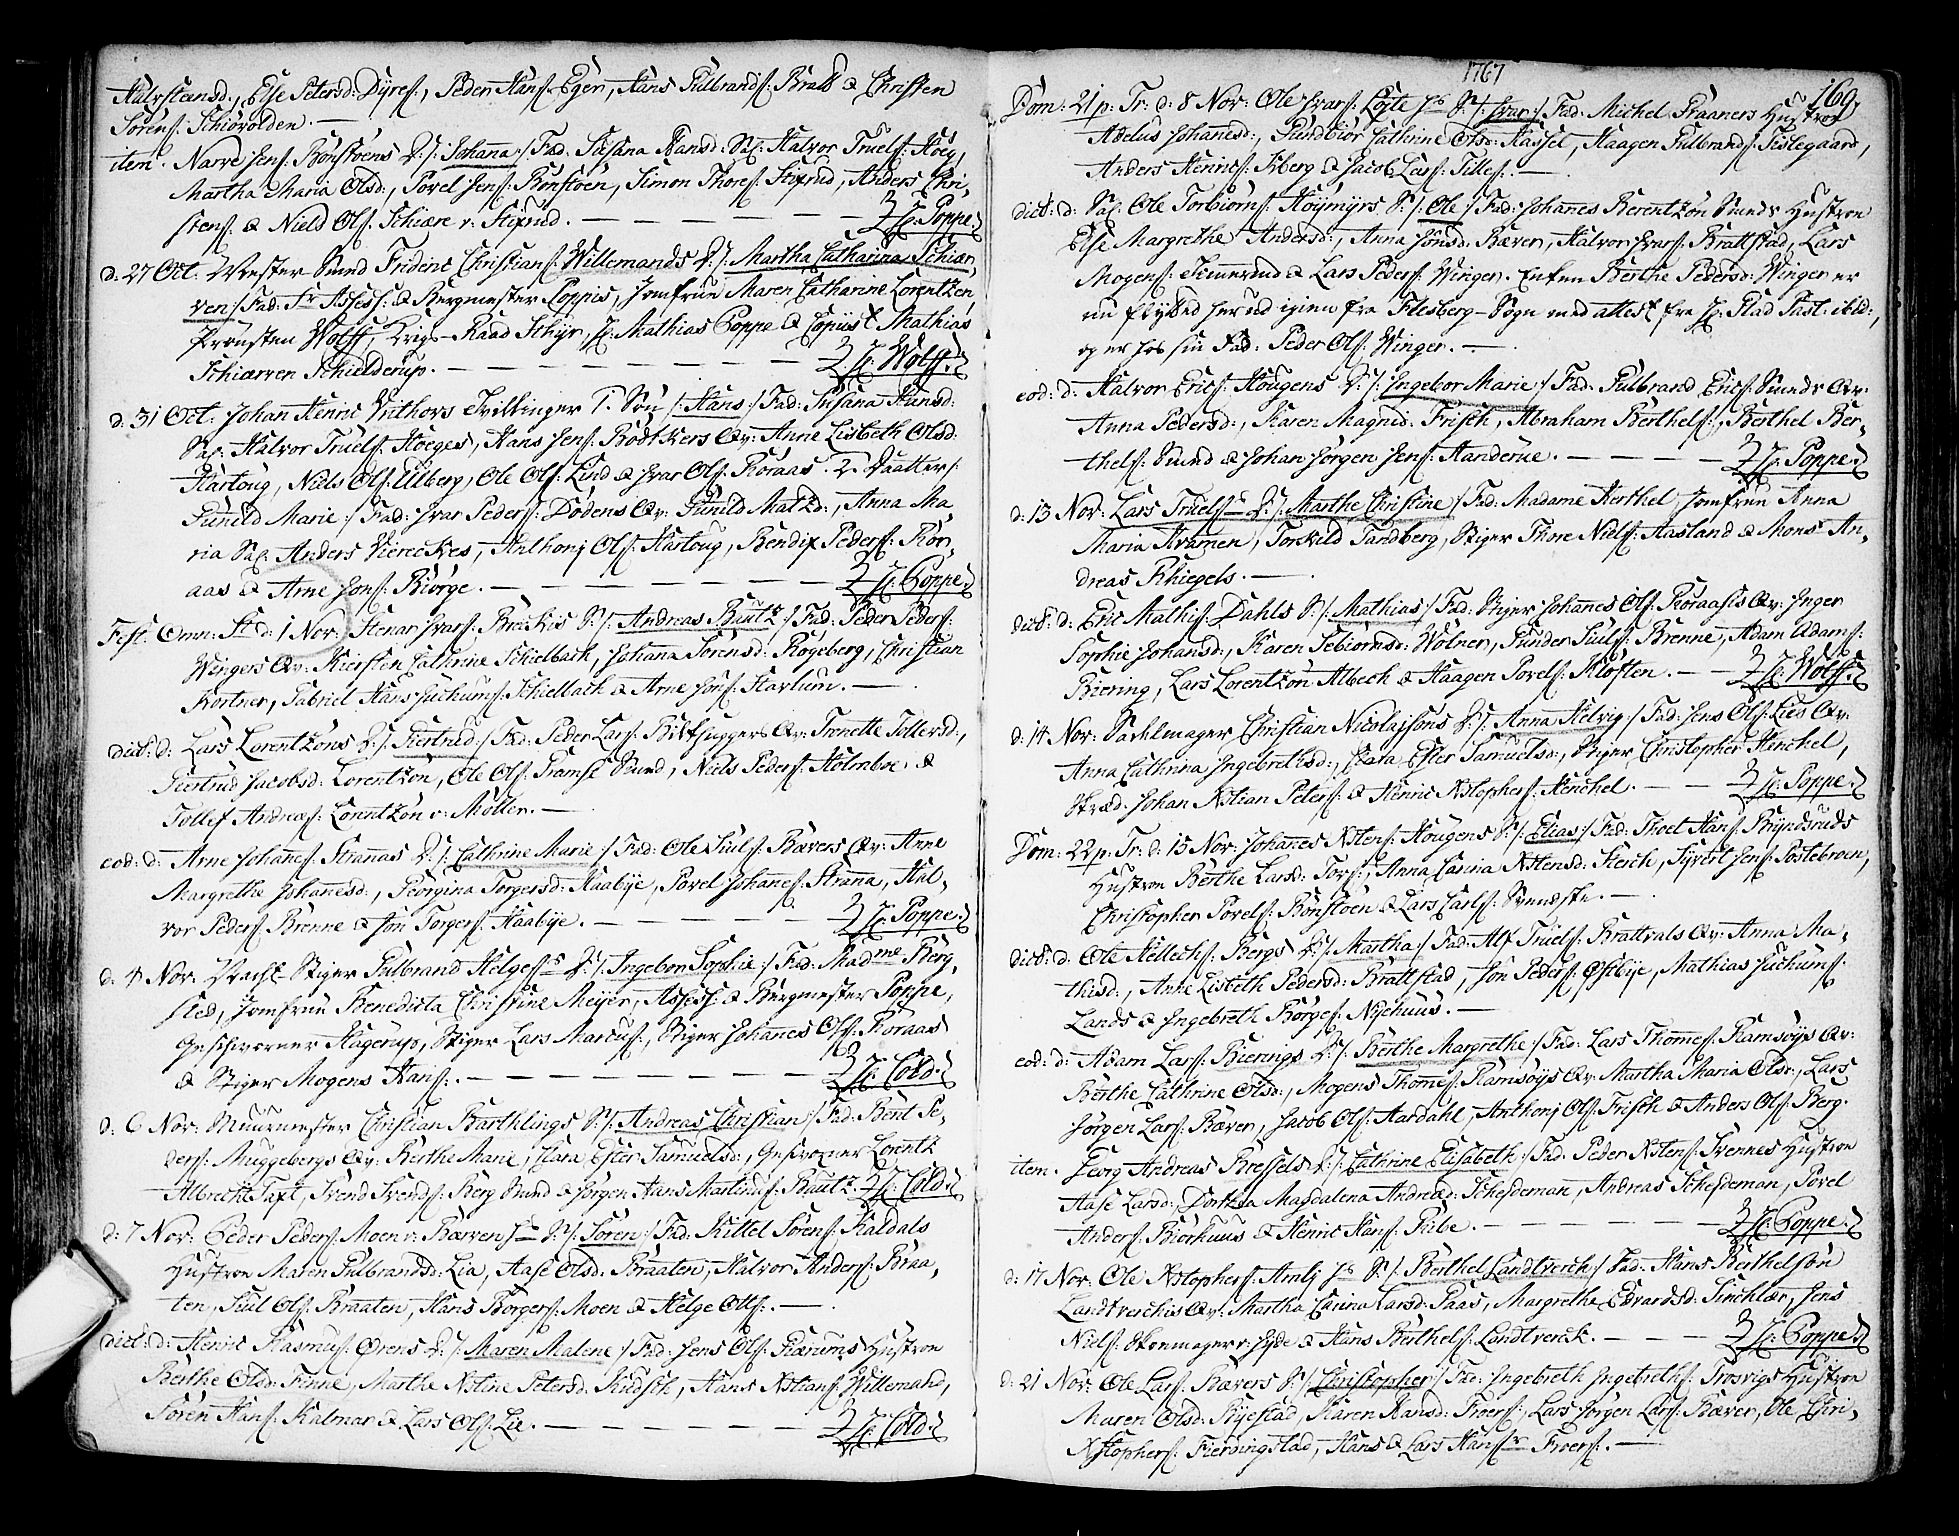 Halvstensd:, Else Petersd: Dyres:, Peder Hans: Egen, Hans Gulbrands: Bratt & Christen
Sørens: Schiørolden. —
item. Narve Jens: Bonstøens D:/: Johana :/ Fad: Susana Hansd: Sal: Halvor Truels: Hoeg,
Martha Maria Olsd:, Povel Jens: Bonstoen, Simon Thores: Stifrud, Anders Chri,
stens: & Niels Ols: Schiære v: Stifrud. — H: Poppe.
d: 27 Oct: Mester Smed Frideric Christians: Willemands D:/: Martha Catharina Schiær,
ven :/ Fad: Fr: Assess: & Bergmester Poppis, Jomfrue Maren Catharine Lorentzen,
Provsten Wolff, Krigs-Raad Schyr, H: Mathias Poppe & Copiist Mathias
Schiærven Schielderup. — H: Wolff.
d: 31 Oct: Johan Henric Vinthers Tvillinger 1. Søn /: Hans :/ Fad: Susana Hansd:
Sal: Halvor Truels: Hoeges, Hans Jens: Bødtkers Qv: Anne Lisbeth Olsd:
Hartoug, Niels Ols: Ulberg, Ole Ols: Lind & Ivar Ols: Roraas. 2. Daatter /:
Gunild Marie :/ Fad: Ivar Peders: Dødens Qv: Gunild Matzd:, Anna Ma,
ria Sal: Anders Viereckes, Anthonj Ols: Hartoug, Bendix Peders: Rør,
aas & Arne Jons: Biørge. — H: Poppe.
Fest: Omn: St: d: 1 Nov: Stenar Ivars: Breckis S:/: Andreas Bautz :/ Fad: Peder Peders:
Wingers Qv: Kiersten Cathrine Schielbach, Johana Sørensd: Rogeberg, Christian
Kortner, Gabriel Hans Juchums: Schielbach & Arne Jons: Havlum. —
dict: d: Lars Lorentzøns D:/: Giertrud :/ Fad: Peder Lars: Biltsuggers Qv: Tronette Tollersd:,
Giertrud Jacobsd: Lorentzon, Ole Ols: Gamse Smed, Niels Peders: Holmboe &
Tollef Andreæs: Lorentzon v: Møller. —
eod: d: Arne Johanes: Strannas D:/: Cathrine Marie :/ Fad: Ole Juuls: Bævers Qv: Anne
Margrethe Johanesd:, Georgina Torgersd: Haabye, Povel Johanes: Stranna, Hal,
vor Peders: Brenne & Jon Torgers: Haabye. — H: Poppe.
d: 4 Nov: Vacht Stiger Gulbrand Helgess D:/: Ingebor Sophie :/ Fad: Madme Berg,
sted, Jomfrue Benedicta Christine Meyer, Assess: & Bergmester Poppe,
Geschvorner Hagerup, Stiger Lars Marcus:, Stiger Johanes Ols: Roraas
& Stiger Mogens Hans:. — H: Cold.
d: 6 Nov: Muurmester Christian Barthlings S:/: Andreas Christian :/ Fad: Bent Pe,
ders: Muggebergs Qv: Berthe Marie, Clara Ester Samuelsd:, Geschvorner Lorentz
Albrecht Taft, Svend Svends: Berg Smed & Jørgen Hans Martinus: Bautz. H: Cold.
d: 7 Nov: Peder Peders: Moen v: Bæveren S:/: Søren :/ Fad: Kittel Sørens: Kaldals
Hustroe Maren Gulbrandsd: Lia, Aase Olsd: Braaten, Halvor Anders: Braa,
ten, Juul Ols: Braaten, Hans Borgers: Moen & Helge Olss:. —
dict: d: Henric Rasmus: Ørens D:/: Maren Malene :/ Fad: Jens Ols: Rærums Hustroe
Berthe Olsd: Tenne, Marthe Xstine Petersd: Kudsch, Hans Xstians: Willemand,
Søren Hans: Kalmar & Lars Ols: Lie. — H: Cold.
1767
169.
Dom: 21 p: Tr: d: 8 Nov: Ole Ivars: Løgte S:/: Ivar :/ Fad: Michel Staaners Hustroe
Adelus Johanesd:, Gundbior Cathrine Olsd: Hassel, Haagen Gulbrands: Teslegaard,
Anders Henrics: Moberg & Jacob Lars: Tilles:. —
dict: d: Sal: Ole Torbiørns: Høymyrs S:/: Ole :/ Fad: Johanes Berentzøn Smeds Hustroe
Else Margrethe Andersd:, Anna Jonsd: Bæver, Halvor Ivars: Brattstad, Lars
Mogens: Temmerud & Lars Peders: Winger. Enken Berthe Pedersd: Winger er
nu flytted herud igien fra Flesberg-Sogn med attest fra H: Stad Past: ibid:,
og er hos sin Fad: Peder Ols: Winger. —
eod: d: Halvor Erics: Hougens D:/: Ingebor Marie :/ Fad: Gulbrand Erics: Smeds Qv:
Anna Pedersd:, Karen Magnid: Frisch, Abraham Berthels:, Berthel Ber,
thels: Smed & Johan Jørgen Jens: Handerue. — H: Poppe.
d: 13 Nov: Lars Truelss D:/: Marthe Christine :/ Fad: Madame Herthel, Jomfrue Anna
Maria Kramen, Torkild Tandberg, Stiger Thore Niels: Aasland & Mons: An,
dreas Schiegels. —
dict: d: Eric Mathis: Dahls S:/: Mathias :/ Fad: Stiger Johanes Ols: Roraasis Qv: Inger
Sophie Johansd:, Karen Tebiornsd: Wolner, Gunder Juuls: Brenne, Adam Adams:
Biering, Lars Lorentzon Albech & Haagen Povels: Kloften. — H: Wolff.
d: 14 Nov: Sadelmager Christian Nicolaisons D:/: Anna Helvig :/ Fad: Jens Ols: Lies Qv:
Anna Cathrina Ingebrethsd:, Clara Ester Samuelsd:, Stiger Christopher Henckel,
Skræd: Johan Xstian Peters: & Henric Xstophers: Henchel. — H: Poppe.
Dom: 22 p: Tr: d: 15 Nov: Johanes Xstens: Hougens S:/: Elias :/ Fad: Thoet Hans: Bryndsruds
Hustroe Berthe Larsd: Tors:, Anna Carina Xstensd: Skerch, Syvert Jens: Fossebroen,
Christopher Povels: Bonstoen & Lars Carls: Svendske. —
dict: d: Ole Kellechs: Bergs D:/: Martha :/ Fad: Alf Truels: Brattvals Qv: Anna Ma,
thisd:, Anne Lisbeth Pedersd: Brattstad, Jon Peders: Ostbye, Mathias Juchums:
Lands & Ingebreth Børges: Nyehuus. —
eod: d: Adam Lars: Bierings D:/: Berthe Margrethe :/ Fad: Lars Thomes: Ramsøys Qv:
Berthe Cathrine Olsd:, Mogens Thomes: Ramsøys Qv: Martha Maria Olsd:, Lars
Jørgen Lars: Bæver, Jacob Ols: Aardahl, Anthonj Ols: Frisch & Anders Ols: Berg.
item. Georg Andreas Bressels D:/: Cathrine Elisabeth :/ Fad: Peder Xstens: Svennes Hustroe
Aase Larsd:, Dorthea Magdalena Andreæd: Schesdeman, Andreas Schesdeman, Povel
Anders: Biørkhuus & Henric Hans: Ribe. — H: Poppe.
d: 17 Nov: Ole Xstophers: Amlj S:/: Berthel Landtverch :/ Fad: Hans Berthelsøn
Landtverchis Qv: Martha Carina Larsd: Paas, Margrethe Edvardsd: Sinchlær, Jens
Niels: Skoemager v: Hyde & Hans Berthels: Landtverck. — H: Poppe.
d: 21 Nov: Ole Lars: Bævers S:/: Christopher :/ Fad: Ingebreth Ingebreths: Trosvigs Hustroe
Maren Olsd: Ryestad, Karen Hansd: Troers:, Lars Jørgen Lars: Bæver, Ole Chri,
Xstophers: Fierdingstad, Hans & Lars Hanssr Troers:. —